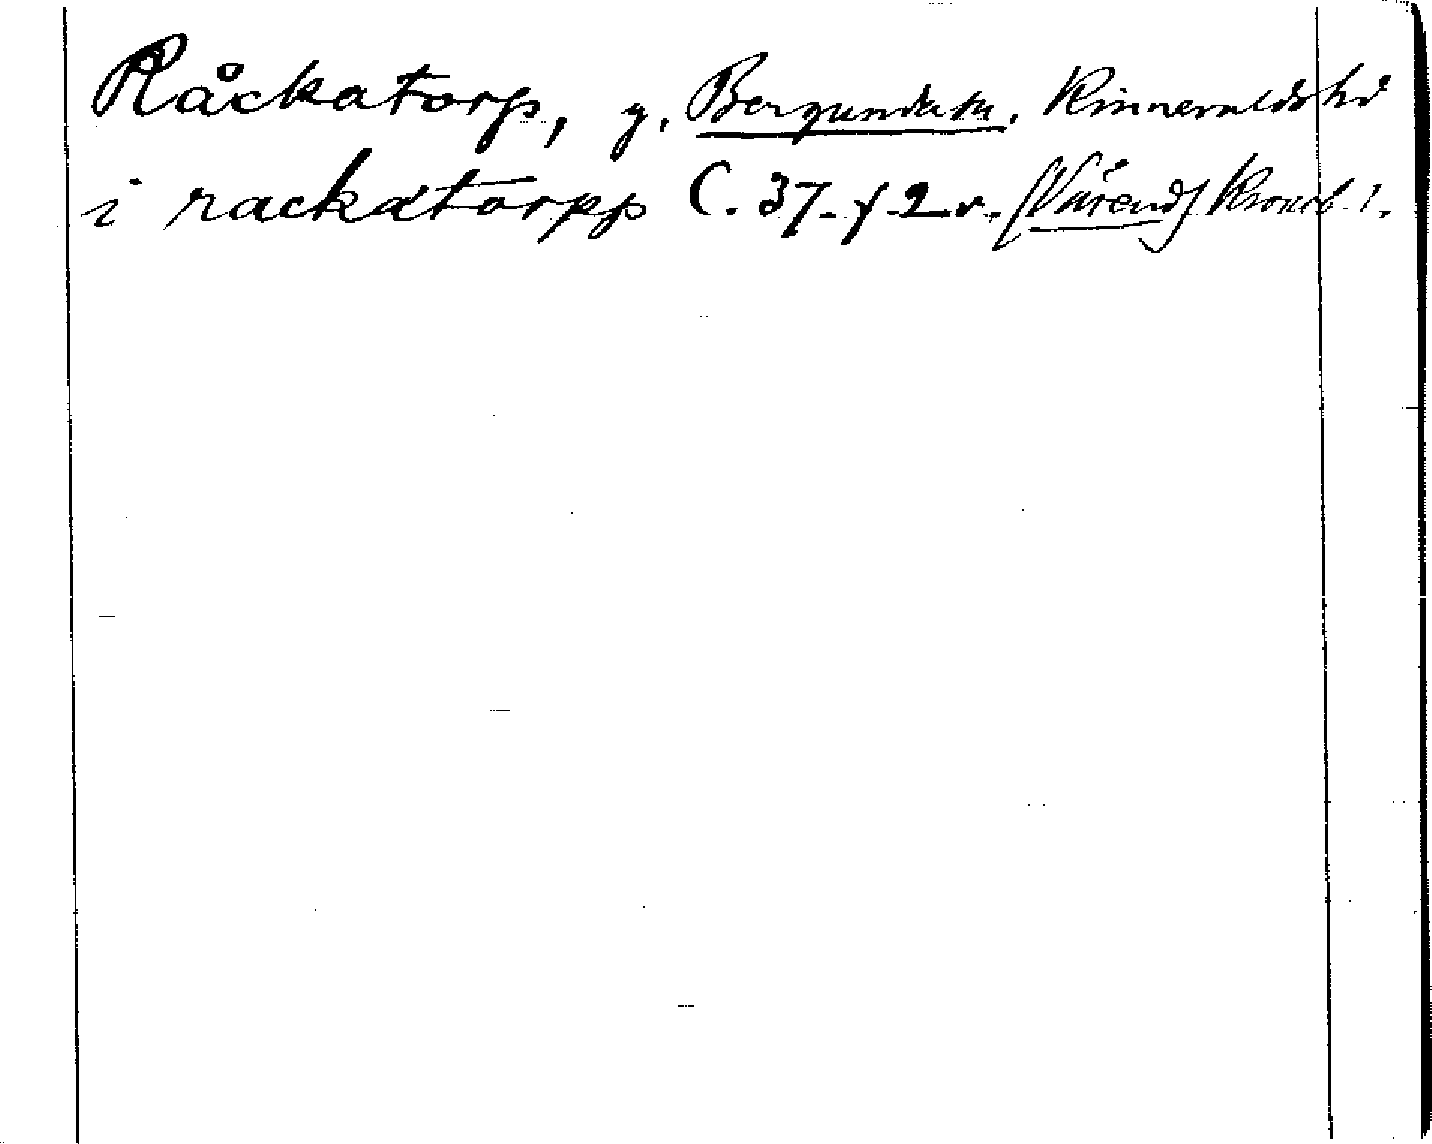 Råckatorp, g. Bergunda sn. Kinnevalds hd
i rackatorpp C. 37. f 2 v. (Värend) Kronob. l.